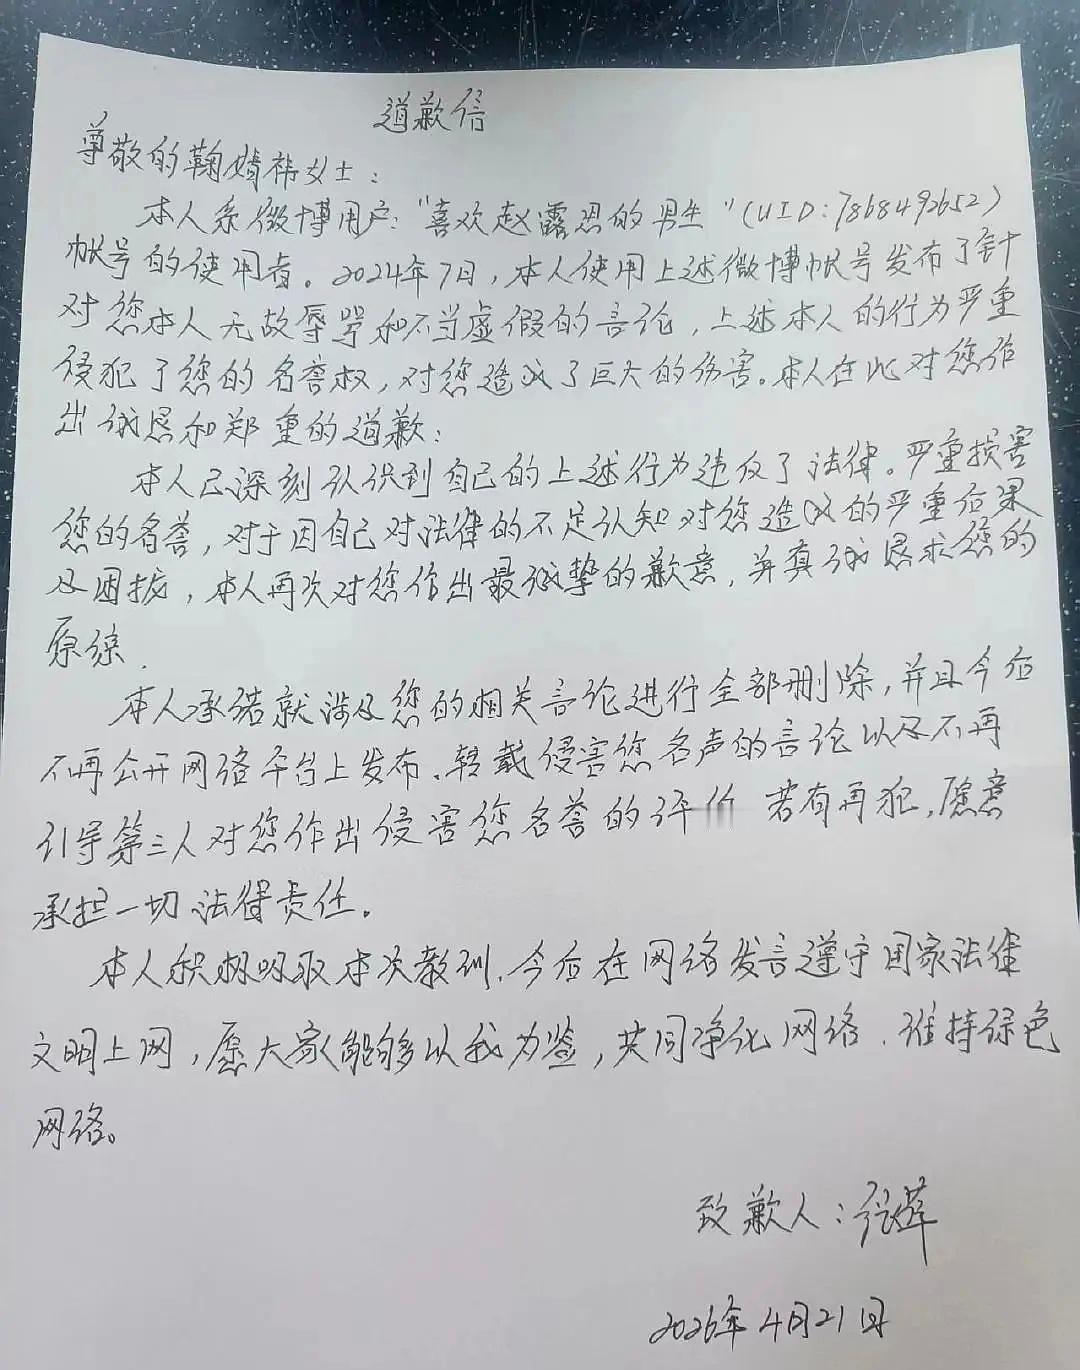 道歉信
尊敬的鞠婧祎女士：
本人系微博用户："喜欢赵露思的男生"(UID:7868492652)
帐号的使用者。2024年7月，本人使用上述微博帐号发布了针
对您本人无故辱骂和不当虚假的言论，上述本人的行为严重
侵犯了您的名誉权，对您造成了巨大的伤害。本人在此对您作
出诚恳和郑重的道歉：
本人已深刻认识到自己的上述行为违反了法律。严重损害
您的名誉，对于因自己对法律的不足认知对您造成的严重后果
及困扰，本人再次对您作出最诚挚的歉意，并真诚恳求您的
原谅.
本人承诺就涉及您的相关言论进行全部删除，并且今后
不再公开网络平台上发布、转载侵害您名声的言论以及不再
引导第三人对您作出侵害您名誉的评价 若有再犯，愿意
承担一切法律责任。
本人积极吸取本次教训，今后在网络发言遵守国家法律
文明上网，愿大家能够以我为鉴，共同净化网络、维持绿色
网络。
致歉人：张
2026年4月21日